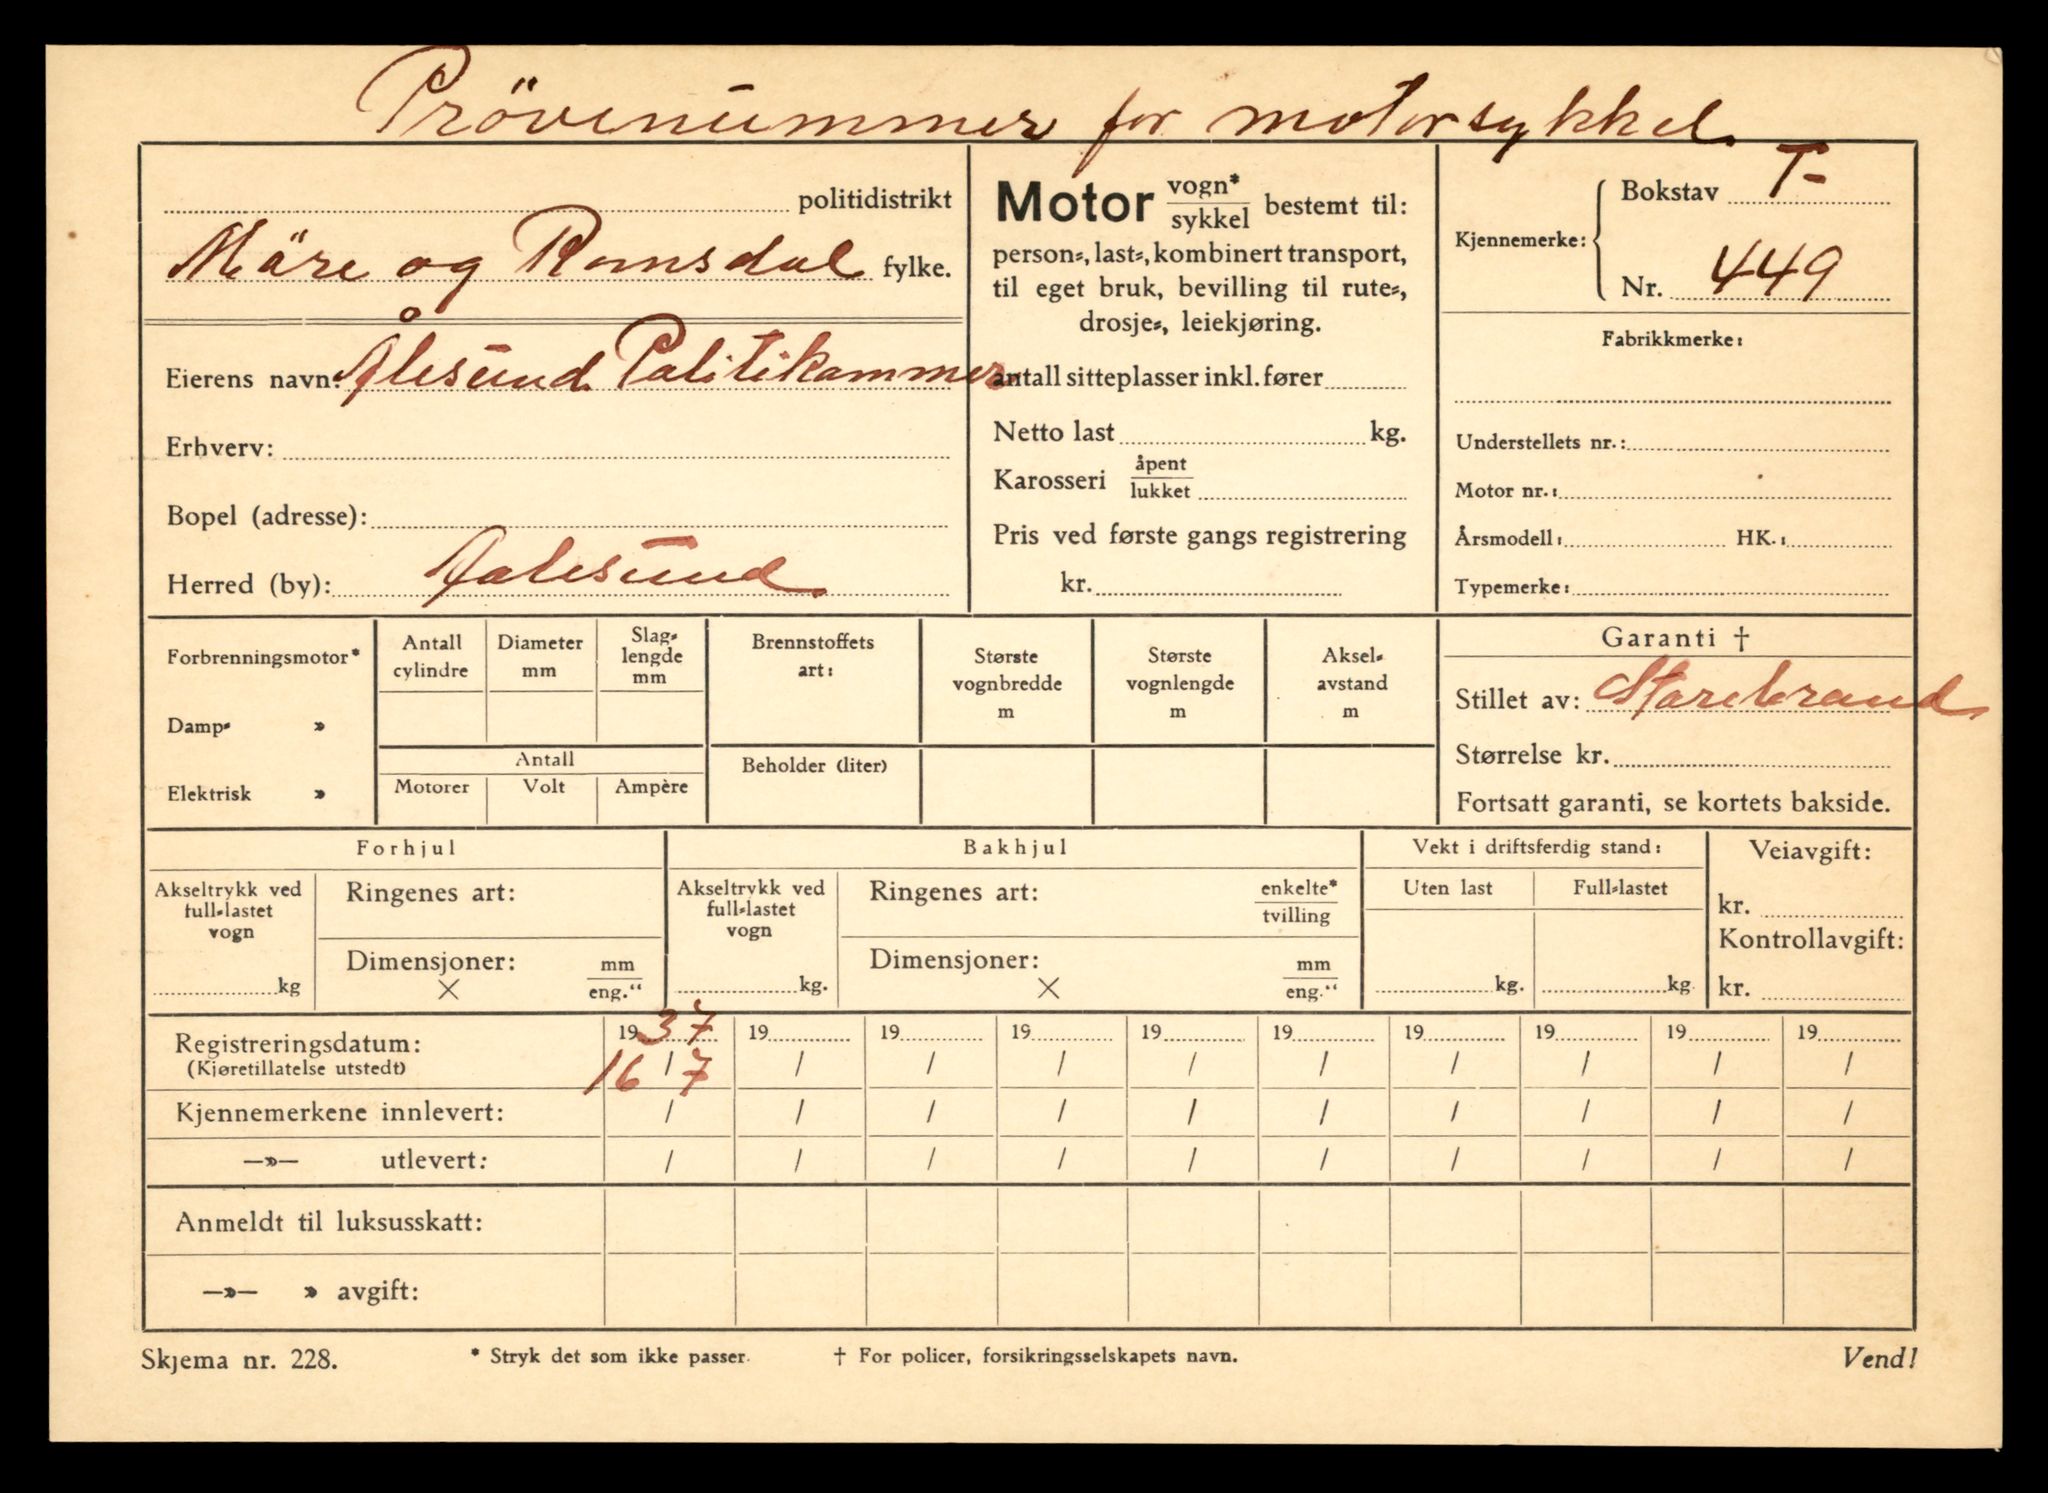 Prövenummer for motorsykkel
politidistrikt
Märe og Romsdal fylke.
Eierens navn: Ålesund Politikammer
Erhverv:
Bopel (adresse):
Herred (by): Aalesund
Motor vogn* / sykkel bestemt til:
person-, last-, kombinert transport,
til eget bruk, bevilling til rute-,
drosje-, leiekjøring.
antall sitteplasser inkl. fører
Netto last kg.
Karosseri åpent / lukket
Pris ved første gangs registrering
kr.
Kjennemerke: Bokstav T-
Nr. 449
Fabrikkmerke:
Understellets nr.:
Motor nr.:
Årsmodell: HK.:
Typemerke:
Forbrenningsmotor*
Damp- »
Elektrisk »
Antall cylindre
Diameter mm
Slag-lengde mm
Antall
Motorer Volt Ampère
Brennstoffets art:
Beholder (liter)
Største vognbredde m
Største vognlengde m
Aksel-avstand m
Garanti †
Stillet av: Storebrand
Størrelse kr.
Fortsatt garanti, se kortets bakside.
Forhjul
Akseltrykk ved full-lastet vogn
kg
Ringenes art:
Dimensjoner: mm / eng."
×
Bakhjul
Akseltrykk ved full-lastet vogn
kg.
Ringenes art: enkelte* / tvilling
Dimensjoner: mm / eng."
×
Vekt i driftsferdig stand:
Uten last Full-lastet
kg. kg.
Veiavgift:
kr.
Kontrollavgift:
kr.
Registreringsdatum: 1937 19 19 19 19 19 19 19 19 19
(Kjøretillatelse utstedt) 16/7 / / / / / / / / /
Kjennemerkene innlevert: / / / / / / / / / /
—»— utlevert: / / / / / / / / / /
Anmeldt til luksusskatt:
—»— » avgift:
Skjema nr. 228. * Stryk det som ikke passer. † For policer, forsikringsselskapets navn. Vend!